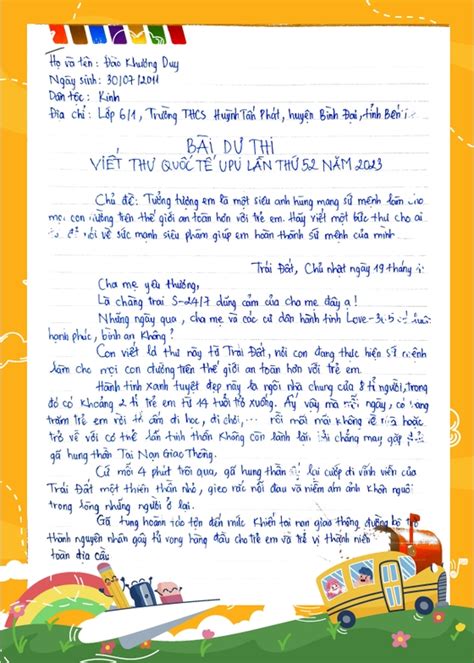 Họ và tên : Đào Khương Duy
Ngày sinh: 30/07/2011
Dân tộc: Kinh
Địa chỉ: Lớp 6/1, Trường THCS Huỳnh Tấn Phát, huyện Bình Đại, tỉnh Bến
BÀI DỰ THI
VIẾT THƯ QUỐC TẾ UPU LẦN THỨ 52 NĂM 2023
Chủ đề: Tưởng tượng em là một siêu anh hùng mang sứ mệnh làm cho
mọi con đường trên thế giới an toàn hơn với trẻ em. Hãy viết một bức thư cho ai
đó để nói về sức mạnh siêu phàm giúp em hoàn thành sứ mệnh của mình
Trái Đất, Chủ nhật ngày 19 tháng
Cha mẹ yêu thương,
Là chàng trai S-24/7 dũng cảm của cha mẹ đây ạ!
Những ngày qua, cha mẹ và các cư dân hành tinh Love-365 có
hạnh phúc, bình an không?
Con viết lá thư này từ Trái Đất, nơi con đang thực hiện sứ mệnh
làm cho mọi con đường trên thế giới an toàn hơn với trẻ em.
Hành tinh xanh tuyệt đẹp này là ngôi nhà chung của 8 tỉ người, trong
đó có khoảng 2 tỉ trẻ em từ 14 tuổi trở xuống. Ấy vậy mà mỗi ngày, có hàng
trăm trẻ em rời tổ ấm đi học, đi chơi, ... rồi mãi mãi không về nữa hoặc
trở về với cơ thể lẫn tinh thần không còn lành lặn vì chẳng may gặp
gã hung thần Tai Nạn Giao Thông.
Cứ mỗi 4 phút trôi qua, gã hung thần lại cướp đi vĩnh viễn của
Trái Đất một thiên thần nhỏ, gieo rắc nỗi đau và niềm ám ảnh khôn nguôi
trong lòng những người ở lại.
Gã tung hoành táo tợn đến mức khiến tai nạn giao thông đường bộ trở
thành nguyên nhân gây tử vong hàng đầu cho trẻ em và thanh niên
toàn địa cầu.